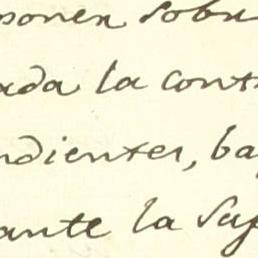 ponen sobr
ada la cont
ndientes, ba
ante la Sup